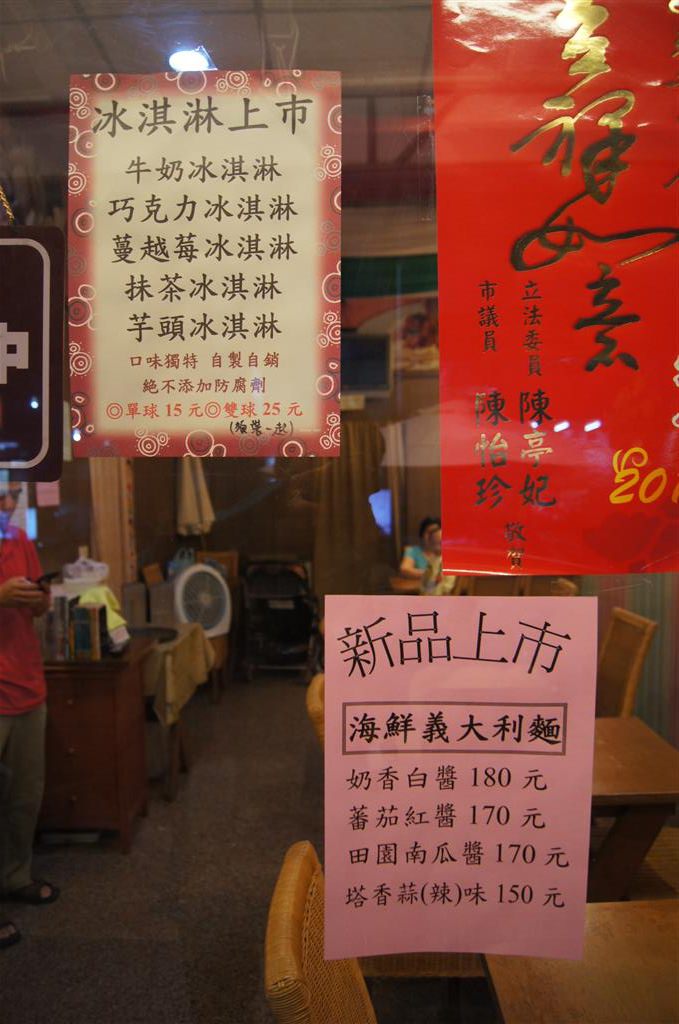 冰淇淋上市
牛奶冰淇淋
巧克力冰淇淋
蔓越莓冰淇淋
抹茶冰淇淋
芋頭冰淇淋
口味獨特 自製自銷
絕不添加防腐劑
◎單球 15 元◎雙球 25 元
中
祥如意
立法委員 陳亭妃
市議員 陳怡珍
敬賀
201
新品上市
海鮮義大利麵
奶香白醬 180 元
蕃茄紅醬 170 元
田園南瓜醬 170 元
塔香蒜(辣)味 150 元